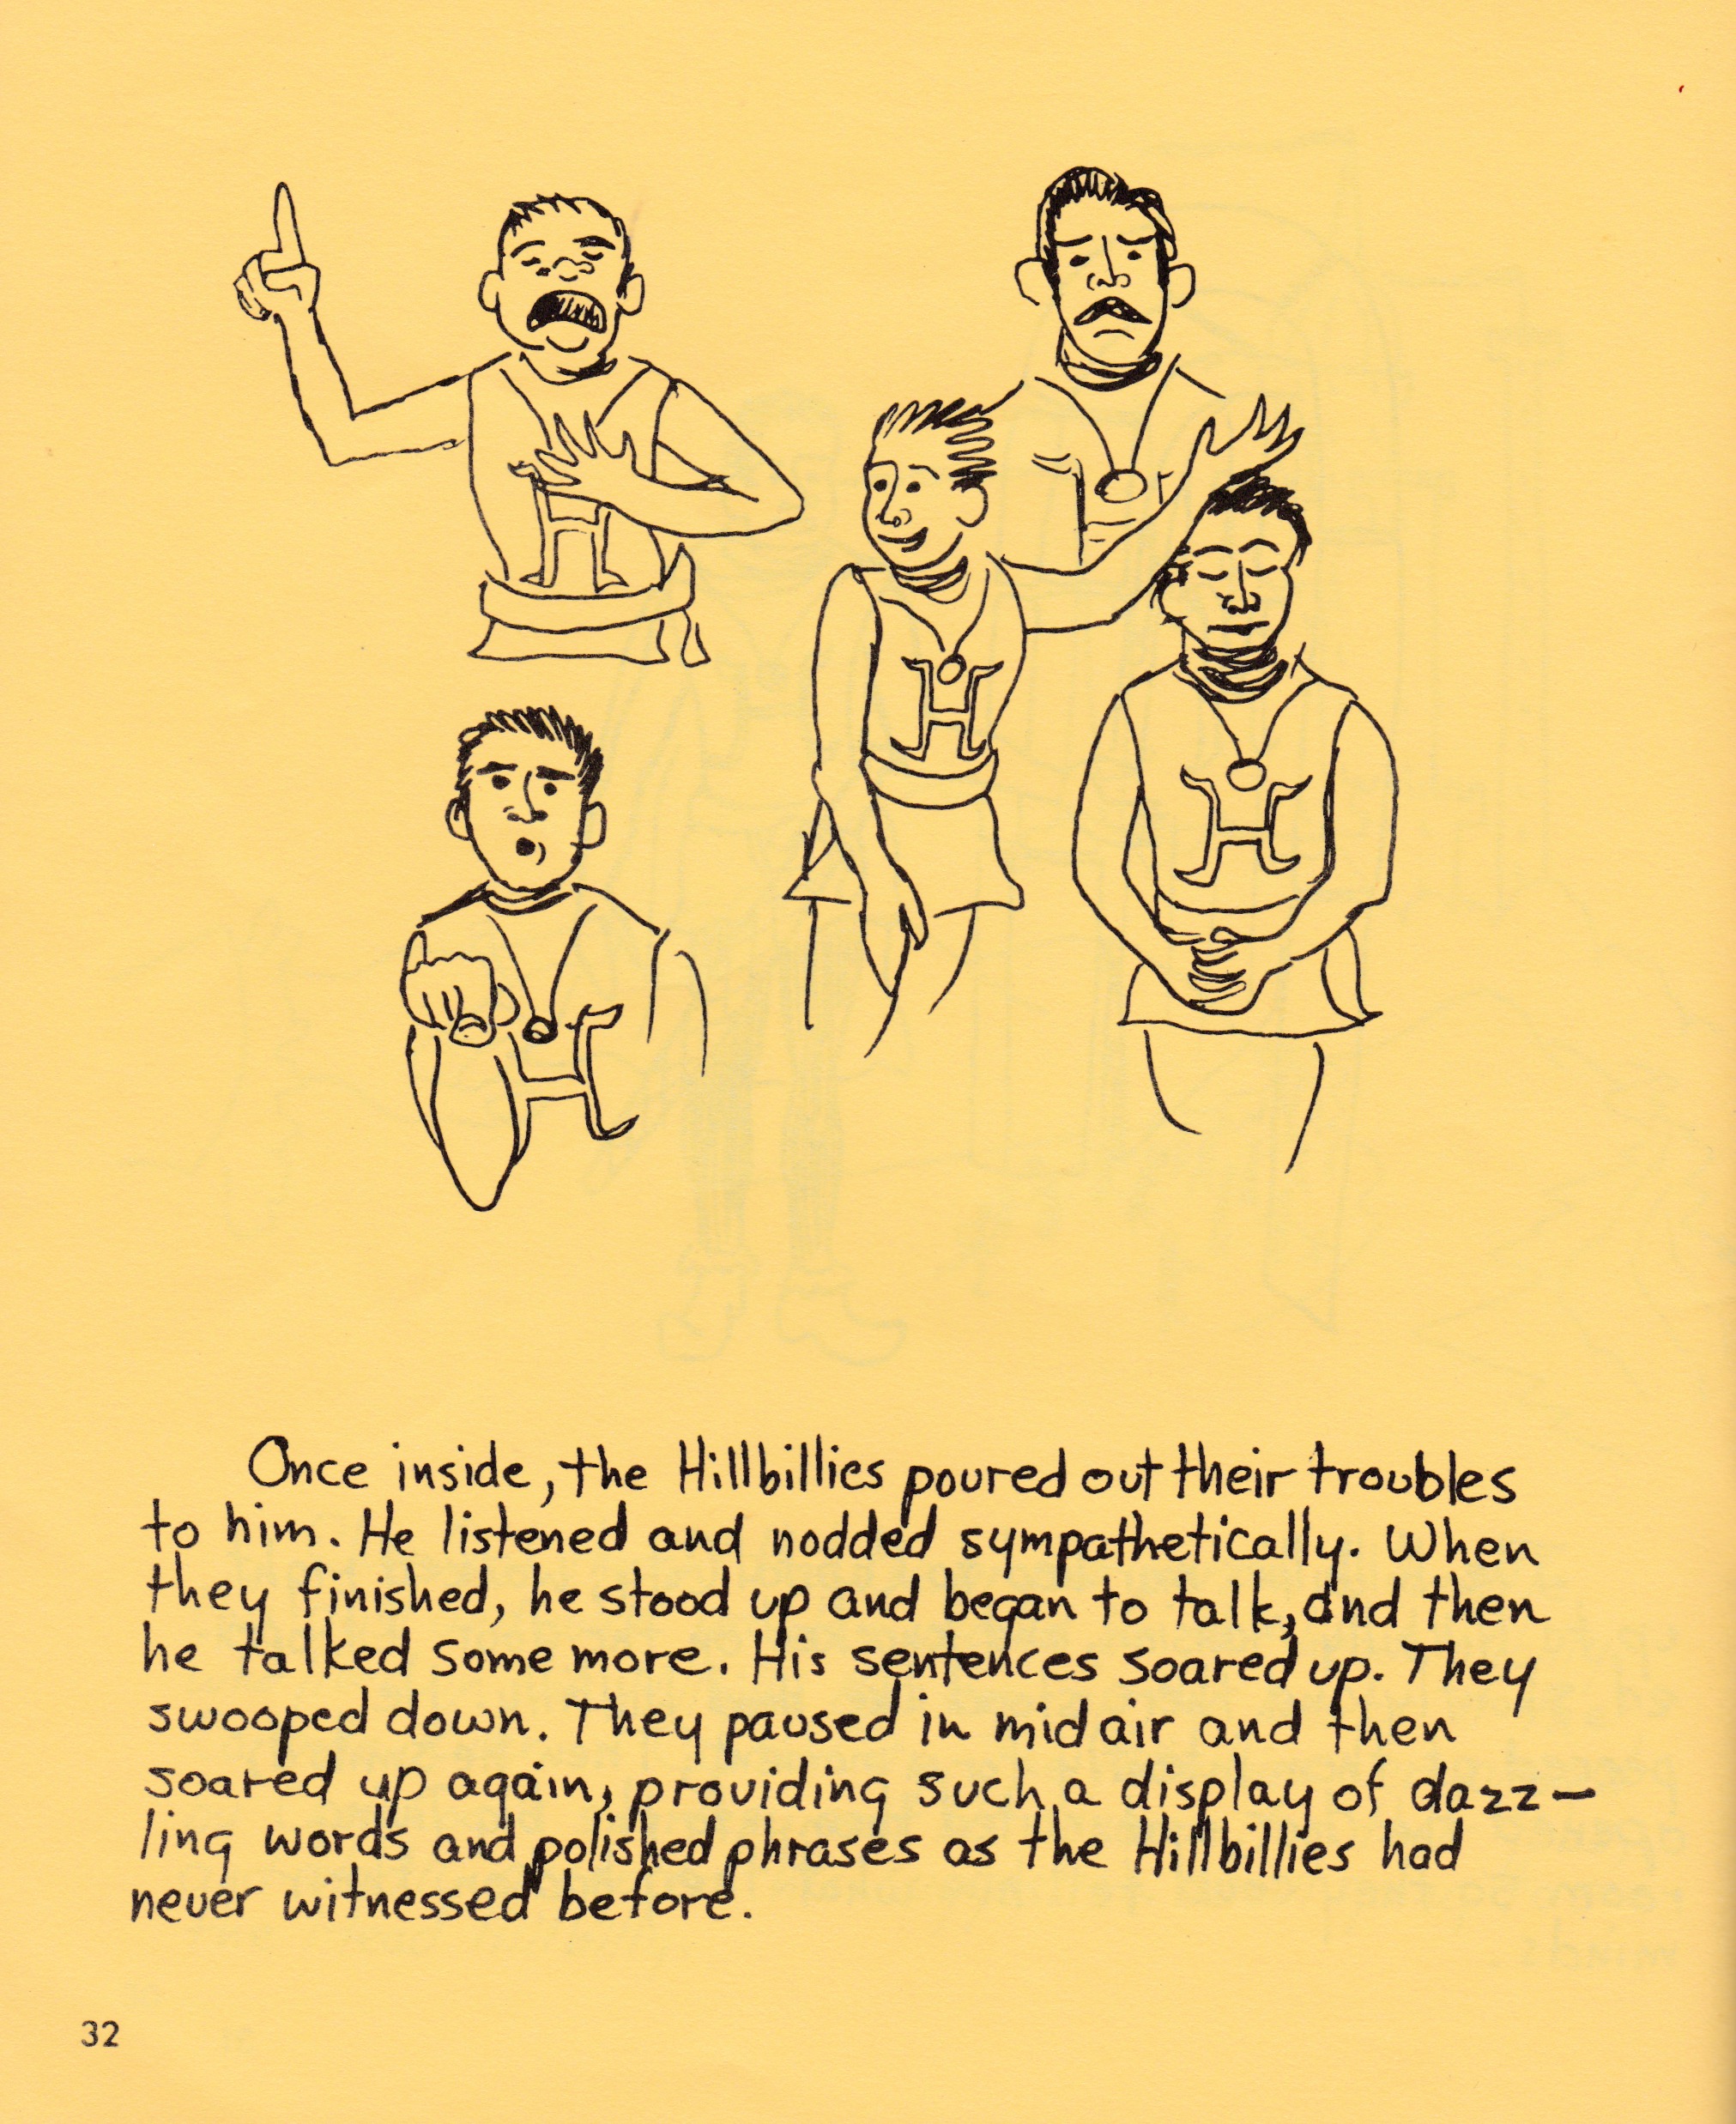 Once inside, the Hillbillies poured out their troubles
to him. He listened and nodded sympathetically. When
they finished, he stood up and began to talk, and then
he talked some more. His sentences soared up. They
swooped down. They paused in mid air and then
soared up again, providing such a display of dazz-
ling words and polished phrases as the Hillbillies had
never witnessed before.
32